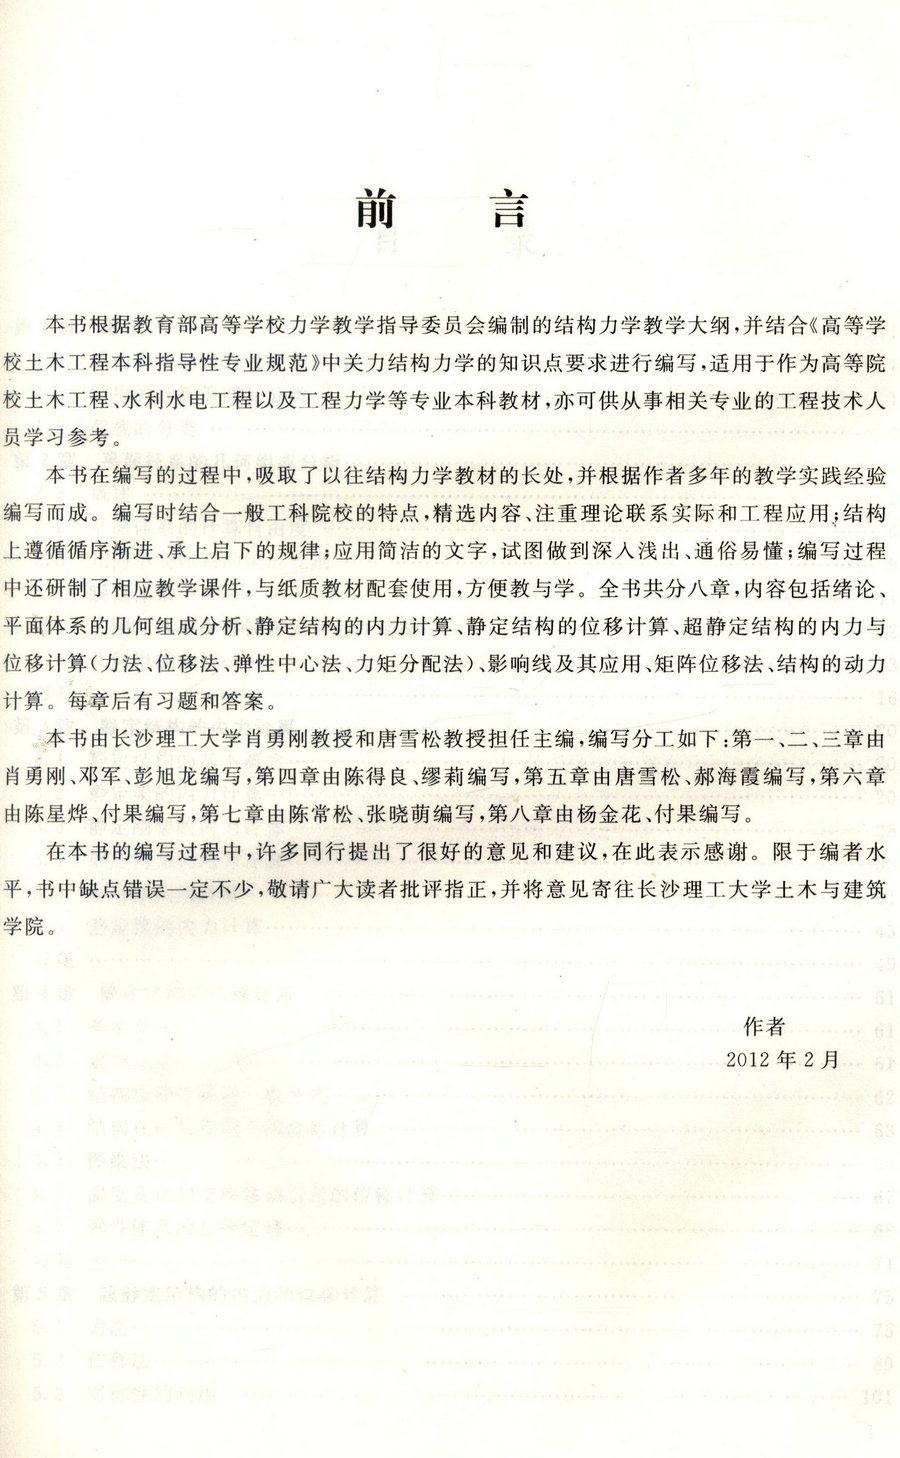 前 言
本书根据教育部高等学校力学教学指导委员会编制的结构力学教学大纲,并结合《高等学
校土木工程本科指导性专业规范》中关力结构力学的知识点要求进行编写,适用于作为高等院
校土木工程、水利水电工程以及工程力学等专业本科教材,亦可供从事相关专业的工程技术人
员学习参考。
本书在编写的过程中,吸取了以往结构力学教材的长处,并根据作者多年的教学实践经验
编写而成。编写时结合一般工科院校的特点,精选内容、注重理论联系实际和工程应用;结构
上遵循循序渐进、承上启下的规律;应用简洁的文字,试图做到深入浅出、通俗易懂;编写过程
中还研制了相应教学课件,与纸质教材配套使用,方便教与学。全书共分八章,内容包括绪论、
平面体系的几何组成分析、静定结构的内力计算、静定结构的位移计算、超静定结构的内力与
位移计算(力法、位移法、弹性中心法、力矩分配法)、影响线及其应用、矩阵位移法、结构的动力
计算。每章后有习题和答案。
本书由长沙理工大学肖勇刚教授和唐雪松教授担任主编,编写分工如下:第一、二、三章由
肖勇刚、邓军、彭旭龙编写,第四章由陈得良、缪莉编写,第五章由唐雪松、郝海霞编写,第六章
由陈星烨、付果编写,第七章由陈常松、张晓萌编写,第八章由杨金花、付果编写。
在本书的编写过程中,许多同行提出了很好的意见和建议,在此表示感谢。限于编者水
平,书中缺点错误一定不少,敬请广大读者批评指正,并将意见寄往长沙理工大学土木与建筑
学院。
作者
2012年2月